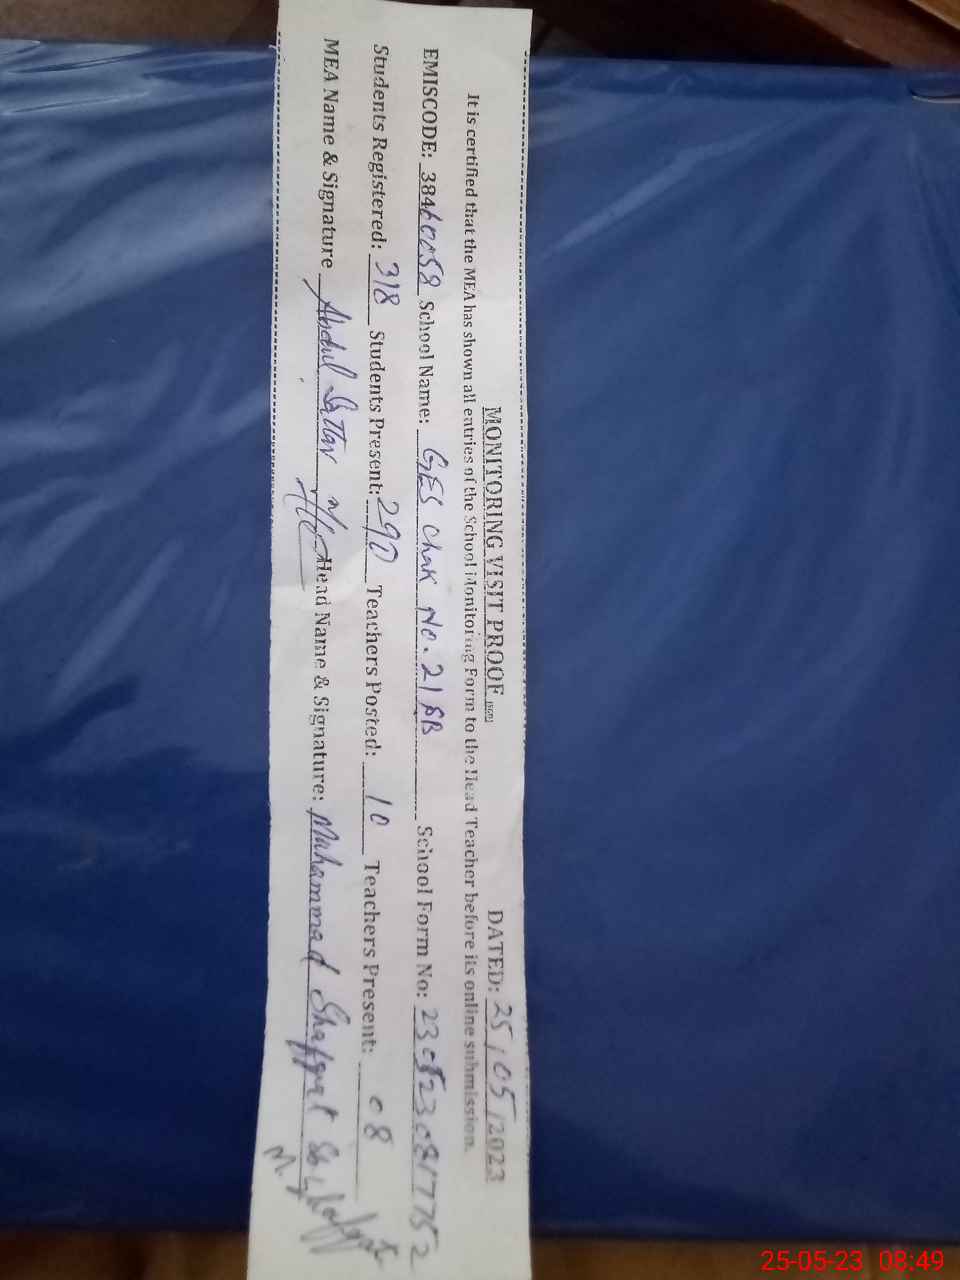 MONITORING VISIT PROOF DATED: 25/05/2023
It is certified that the MEA has shown all entries of the School Monitoring Form to the Head Teacher before its online submission.
EMISCODE: 38460058 School Name: GES Chak No. 21 SB School Form No: 2305230817752
Students Registered: 318 Students Present: 290 Teachers Posted: 10 Teachers Present: 08
MEA Name & Signature Abdul Sattar Head Name & Signature: Muhammad Shafqat
25-05-23 08:49